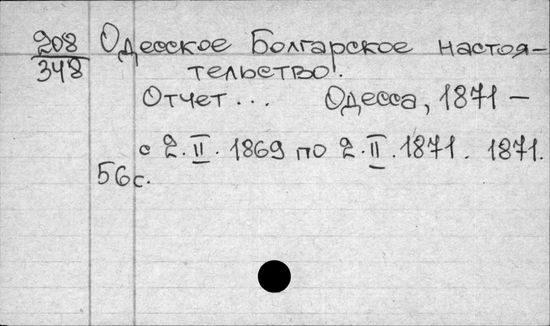 208 Одесское Болгарское настоя-
348 тельство.
Отчет ... Одесса, 1871 –
с 2.II.1869 по 2.II.1871. 1871.
56с.